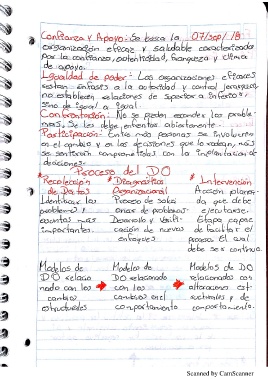 Confianza y Apoyo: Se busca la 07/sep/18
organización eficaz y saludable caracterizada
por la confianza, autenticidad, franqueza y clima
de apoyo.
Igualdad de poder: Las organizaciones eficaces
restan énfasis a la autoridad y control jerárquico
no establecen relaciones de superior a inferior,
sino de igual a igual.
Confrontación: No se pueden esconder los proble
mas, se les debe enfrentar abiertamente.
Participación: Entre más personas se involucren
en el cambio y en las decisiones que lo rodean, más
se sentirán comprometidos con la implantación de
decisiones.
Proceso del DO
* Recolección * Diagnóstico * Intervención
de Datos Organizacional Acción planea-
Identificar los Proceso de soluci da que debe
problemas y onar de problemas ejecutarse.
asuntos más Desarrollo y verifi- Etapa capaz
importantes. cación de nuevos de facilitar el
enfoques proceso. El cual
debe ser continuo.
Modelos de Modelos de Modelos de DO
DO relacio DO relacionado relacionados con
nado con los con los alteraciones est
cambios cambios en el ructurales y de
estructurales comportamiento comportamiento.
Scanned by CamScanner